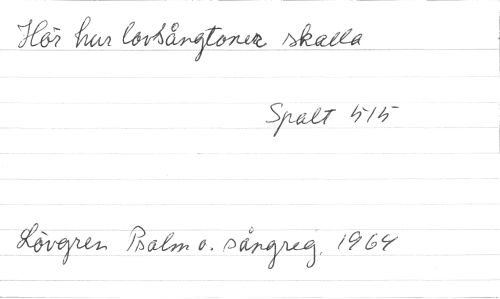 Hör hur lovsångtoner skalla
Spalt 515
Lövgren Psalm o. sångreg. 1964